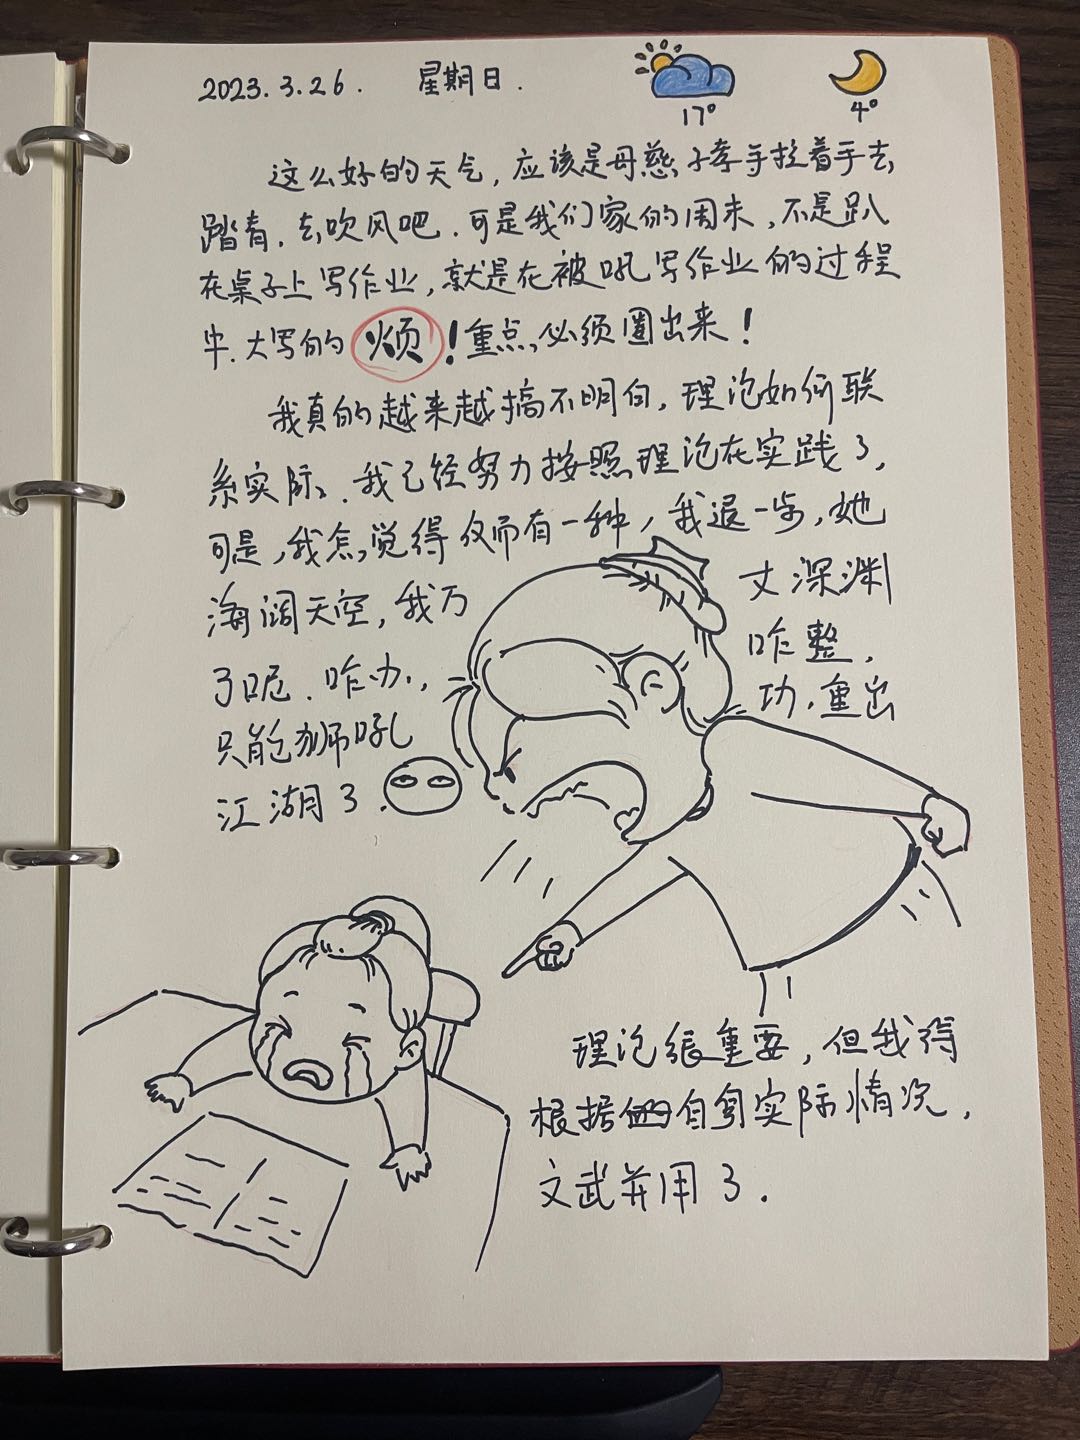 2023.3.26. 星期日.
17° 4°
这么好的天气,应该是母慈子孝手拉着手去
踏青.去吹风吧.可是我们家的周末,不是趴
在桌子上写作业,就是在被吼写作业的过程
中.大写的烦!重点,必须圈出来!
我真的越来越搞不明白,理论如何联
系实际.我已经努力按照理论在实践了,
可是,我怎觉得反而有一种,我退一步,她
海阔天空,我万 丈深渊
了呢.咋办, 咋整,
只能狮吼 功,重出
江湖了.
理论很重要,但我得
根据自身实际情况,
文武并用了.